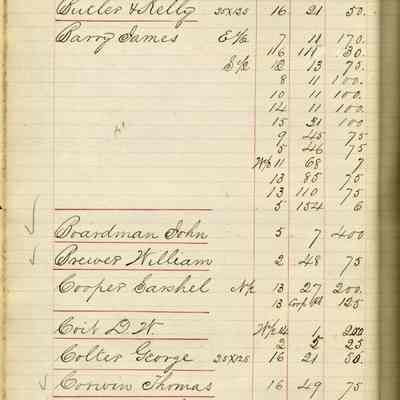 Butler & Kelly 25x125 16 21 50.
Barry James E 1/2 7 11 170.
16 111 30.
S 1/2 12 13 75.
8 11 100.
10 11 100.
14 11 100.
15 21 100
9 45 75
5 46 75
W 1/2 11 68 7
13 85 75
13 110 75
5 154 6
Boardman John 5 7 400
Brewer William 2 48 75
Cooper Sarshel N 1/2 13 27 200.
13 125
Coit D. W. W 1/2 14 1 250
2 5 25
Colter George 25x125 16 21 50.
Corwin Thomas 16 49 75